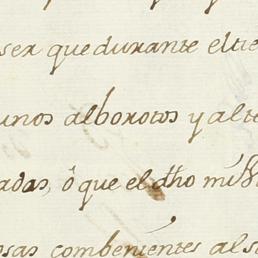 ser que durante el tie
unos alborotos y alte
adas, ô que el dho mi
osas combenientes al s